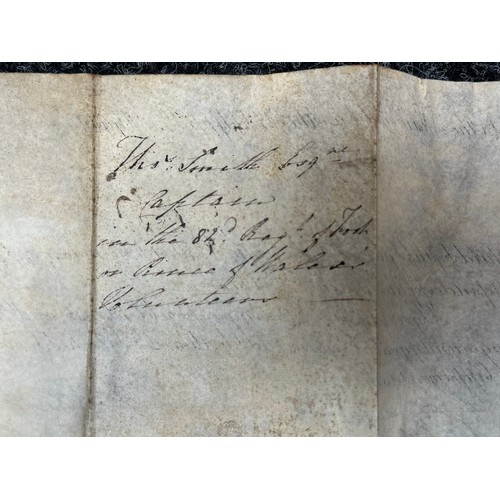 Thos. Smith Esqre
Captain
in the 82d Regt. of Foot
or Prince of Wales's
Volunteers —